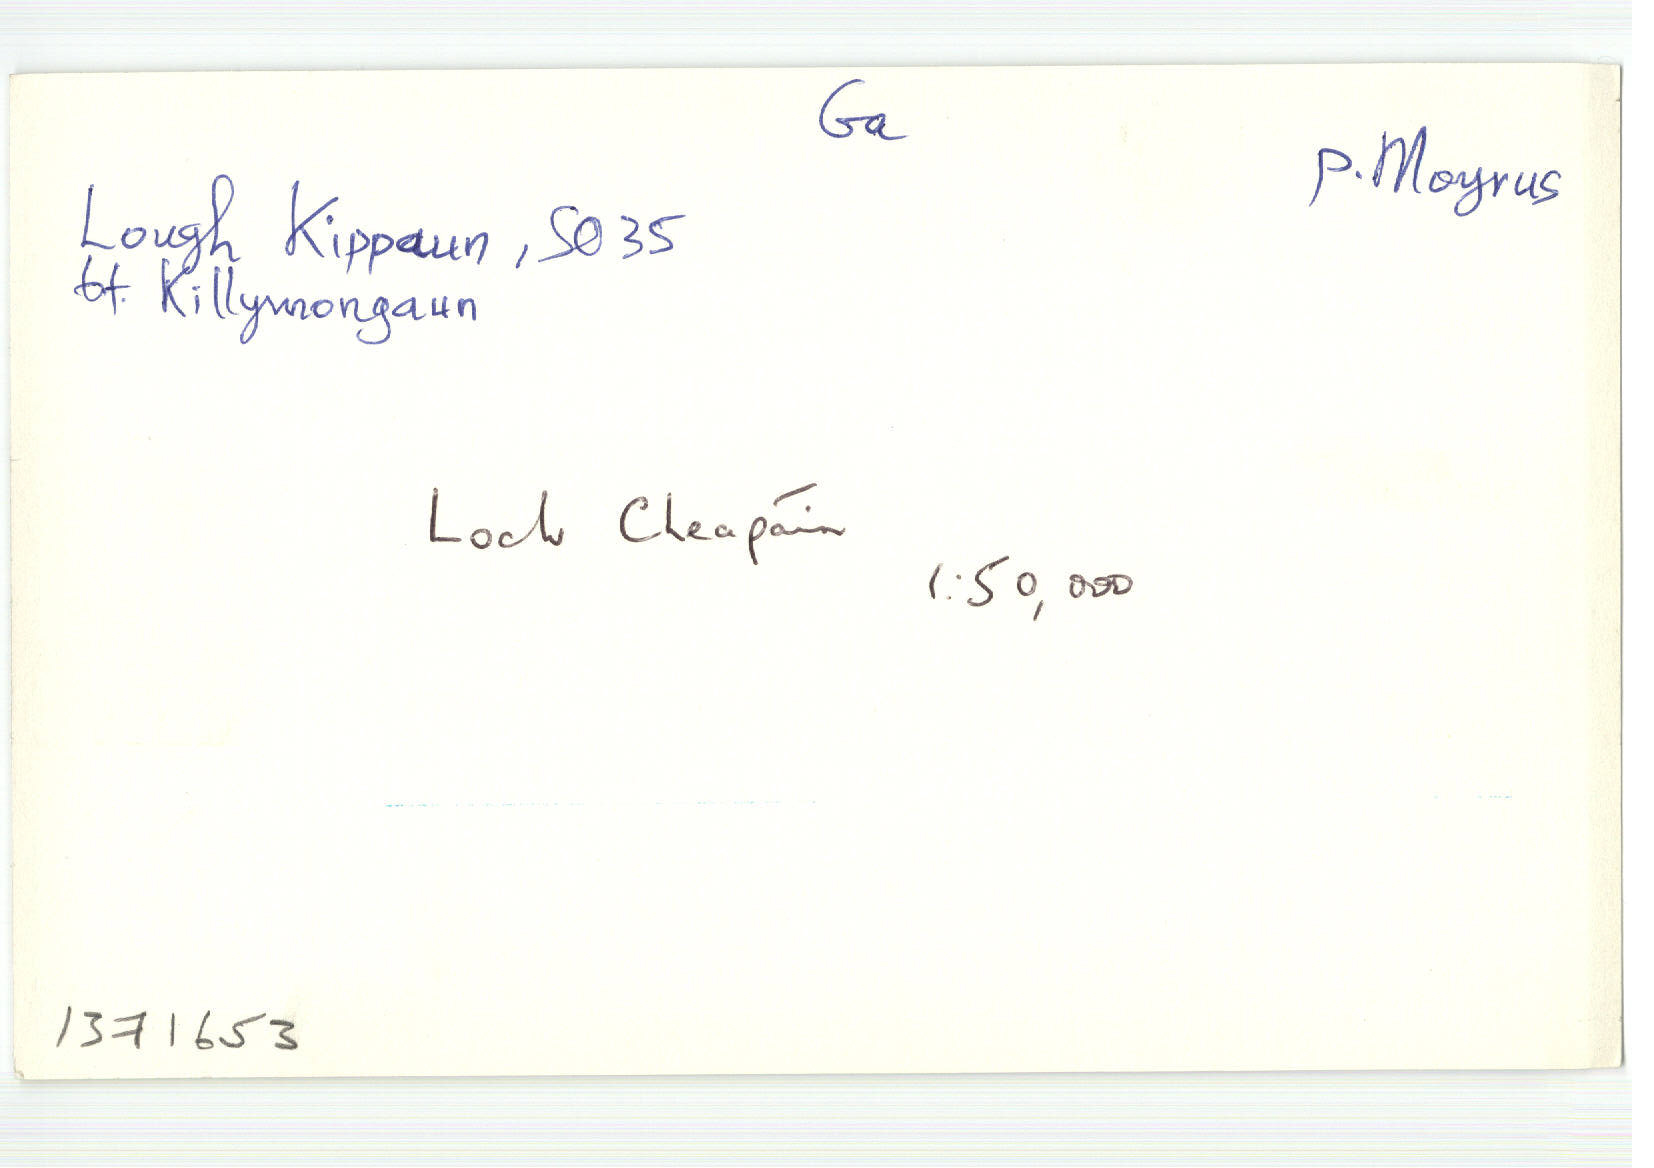 Ga
P. Moyrus
Lough Kippaun, SO 35
bf. Killymongaun
Loch Cheapáin
1:50,000
1371653